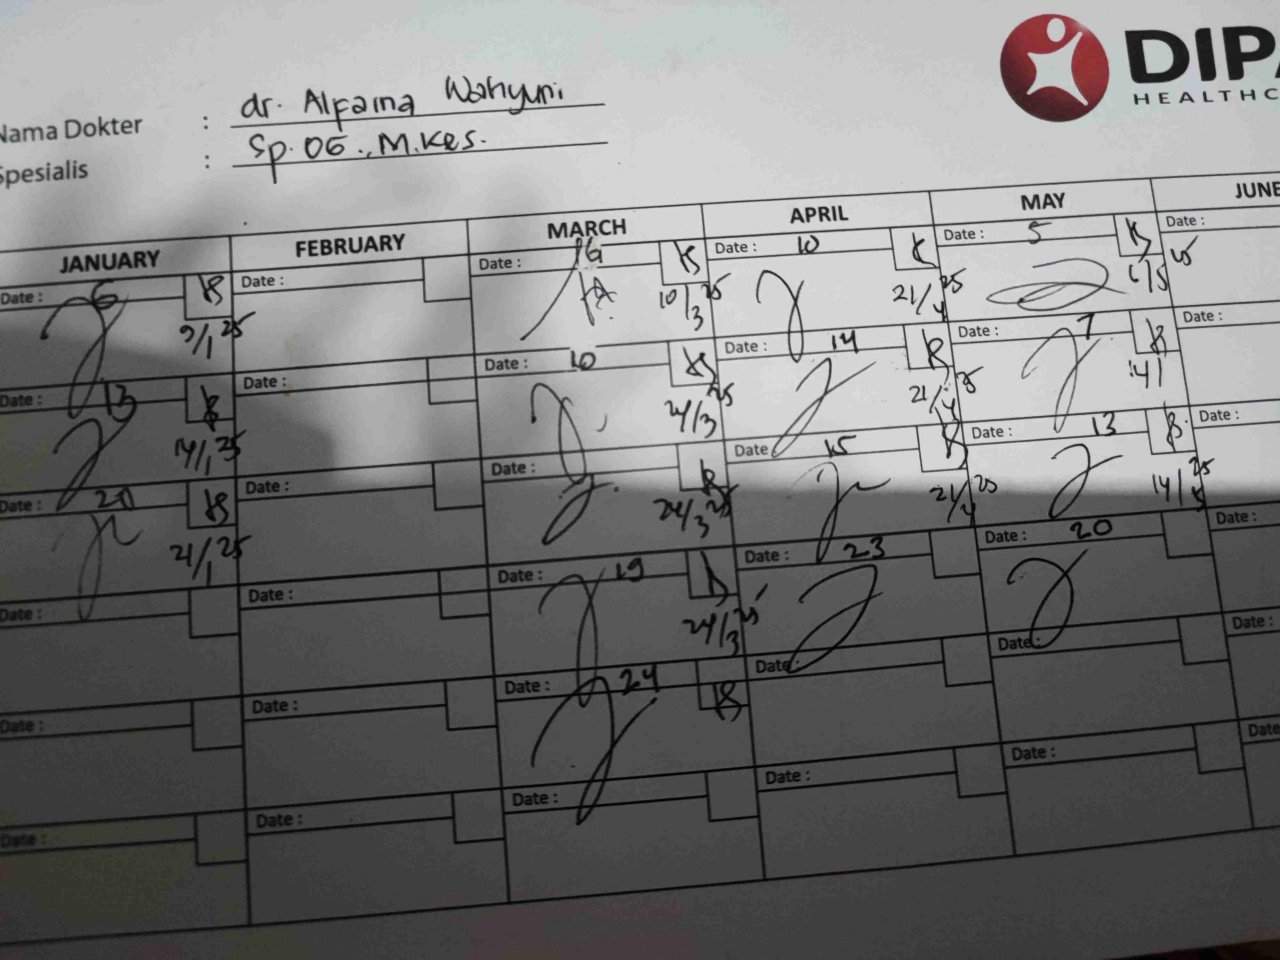 DIPA
HEALTHC
Nama Dokter : dr. Alfaina Wahyuni
Spesialis : Sp.OG., M.Kes.
JANUARY FEBRUARY MARCH APRIL MAY JUNE
Date : 6 Date : Date : Date : 10 Date : 5 Date :
9/1 25 10/3 25 21/4 25 6/5
Date : 13 Date : Date : 10 Date : 14 Date : 7 Date :
14/1 25 24/3 25 21/4 25 14/
Date : 20 Date : Date : Date : 15 Date : 13 Date :
21/1 25 24/3 25 21/4 25 14/5 25
Date : Date : Date : 19 Date : 23 Date : 20 Date :
24/3 25
Date : Date : Date : 24 Date : Date : Date :
Date : Date : Date : Date : Date : Date